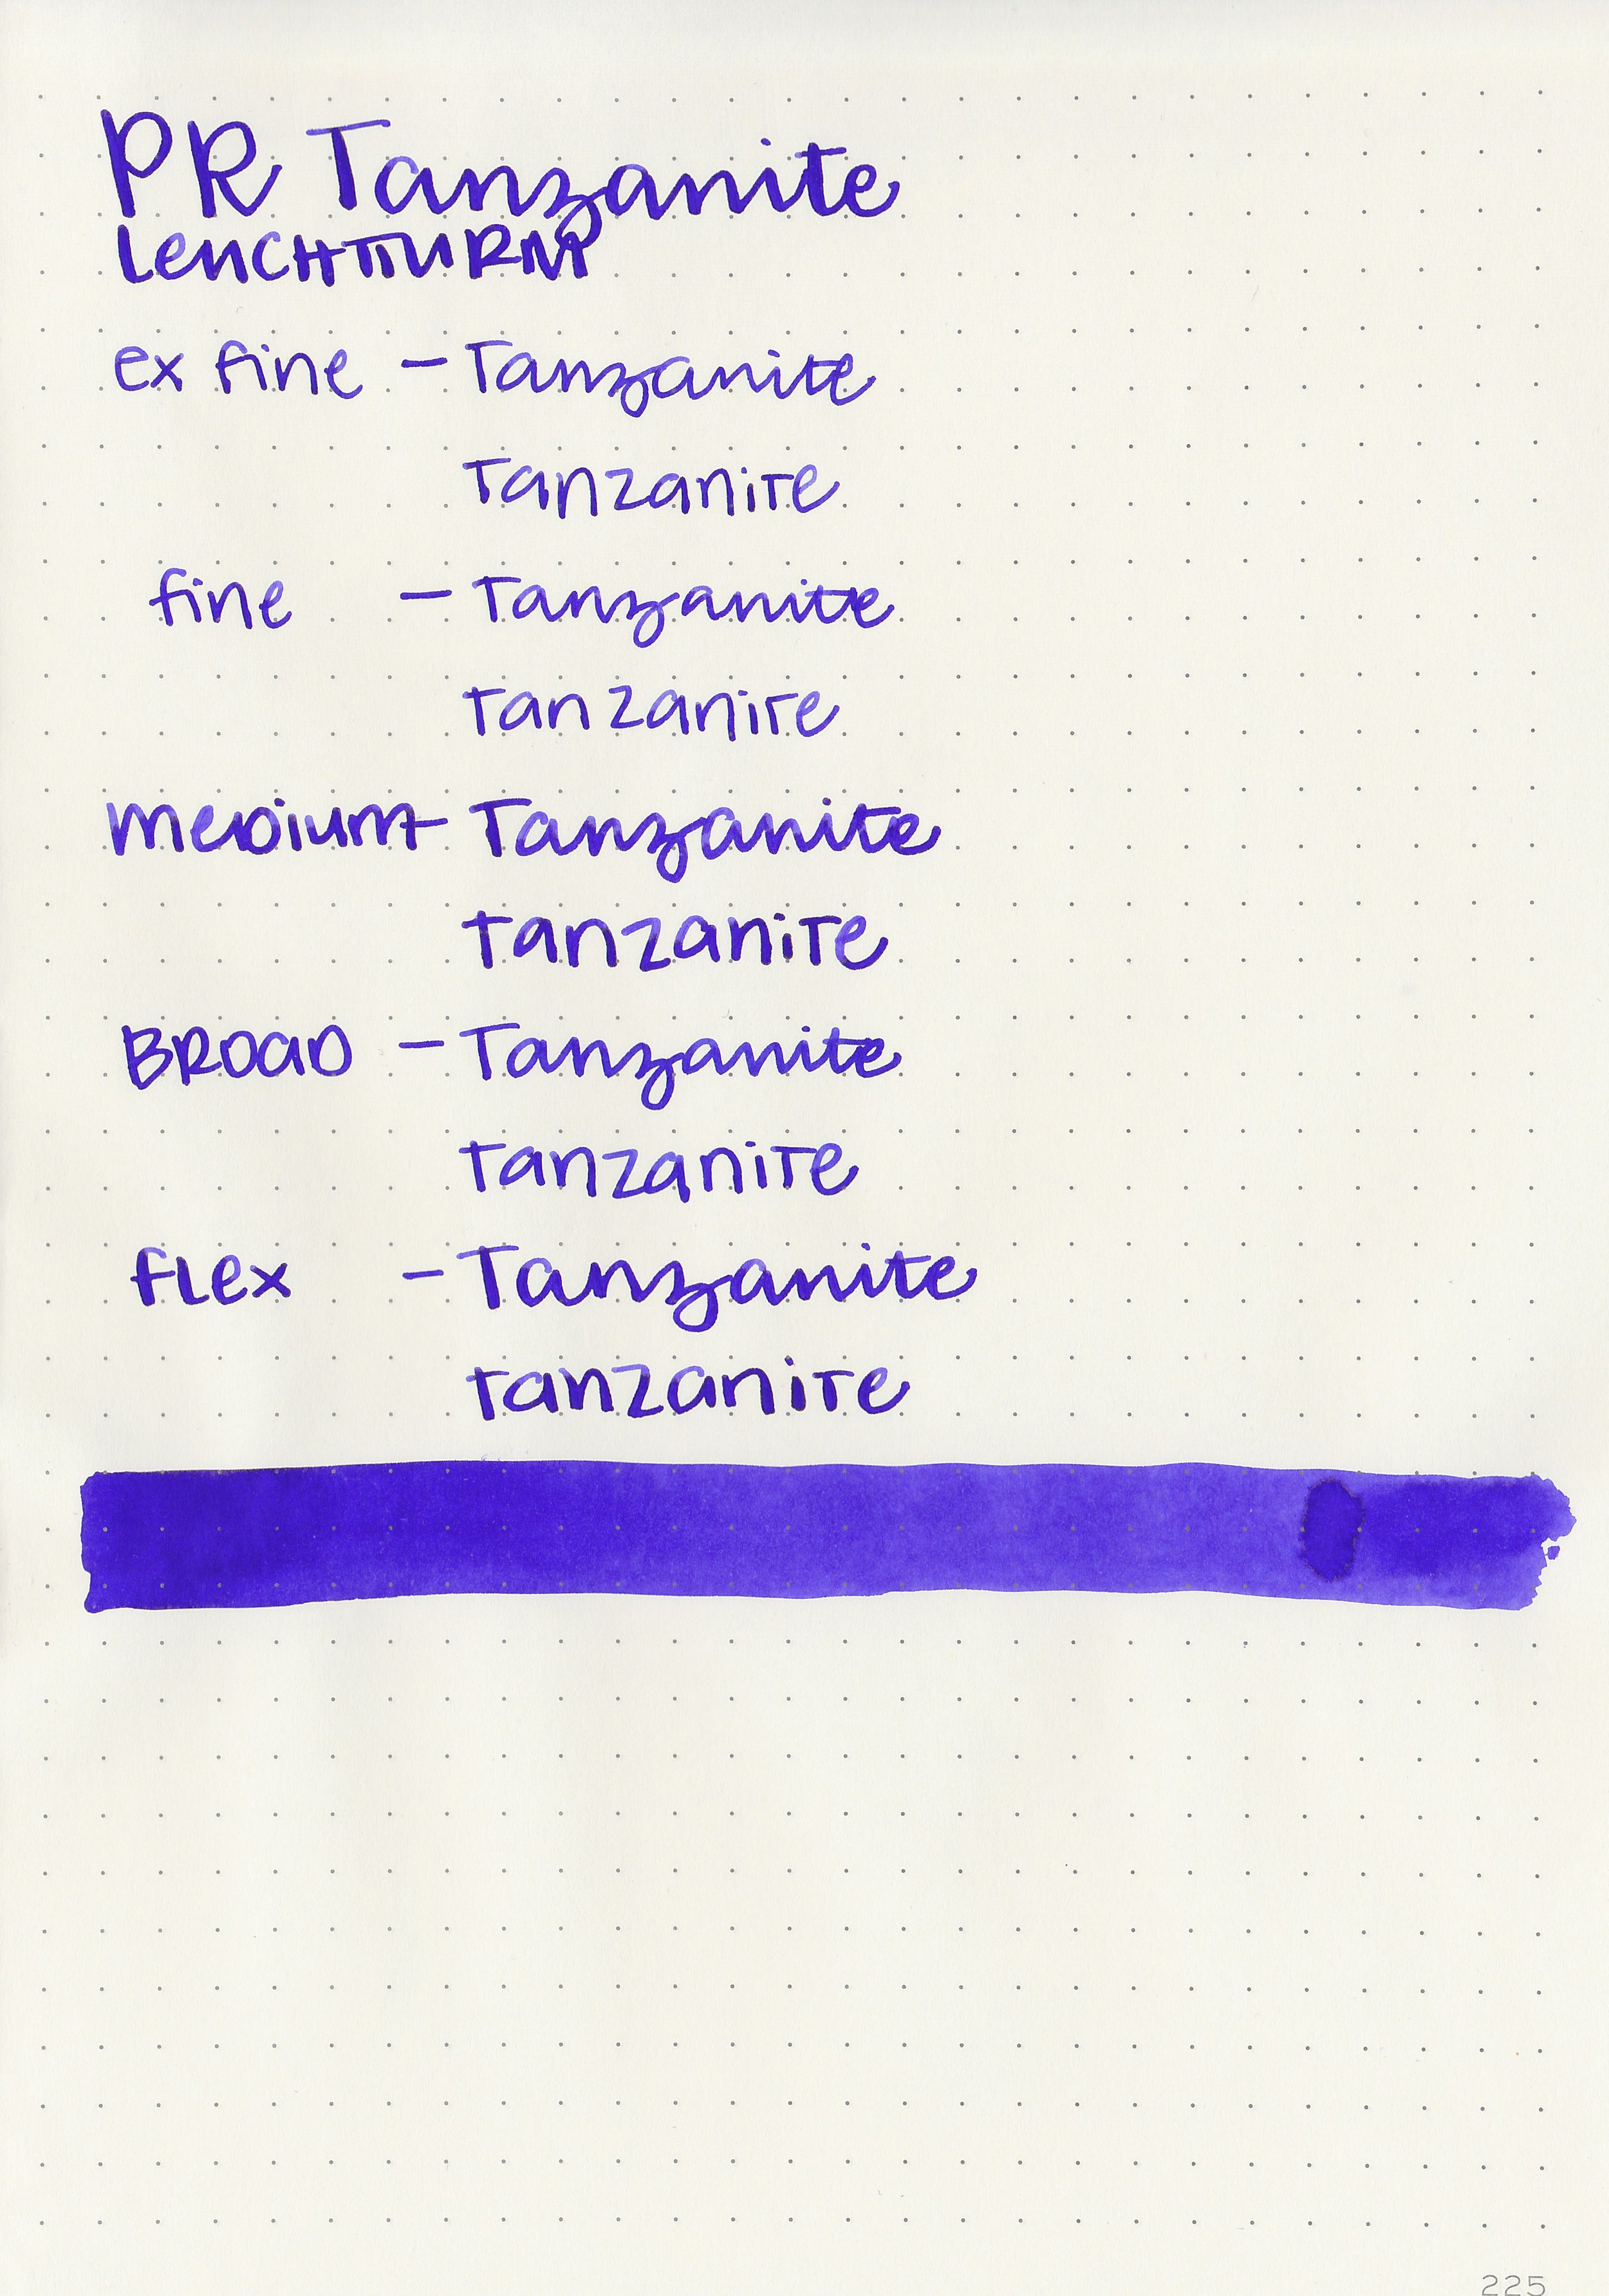 PR Tanzanite
LeUCHTTURM
ex fine - Tanzanite
Tanzanite
fine - Tanzanite
Tanzanite
Medium - Tanzanite
Tanzanite
BROAD - Tanzanite
Tanzanite
flex - Tanzanite
Tanzanite
225